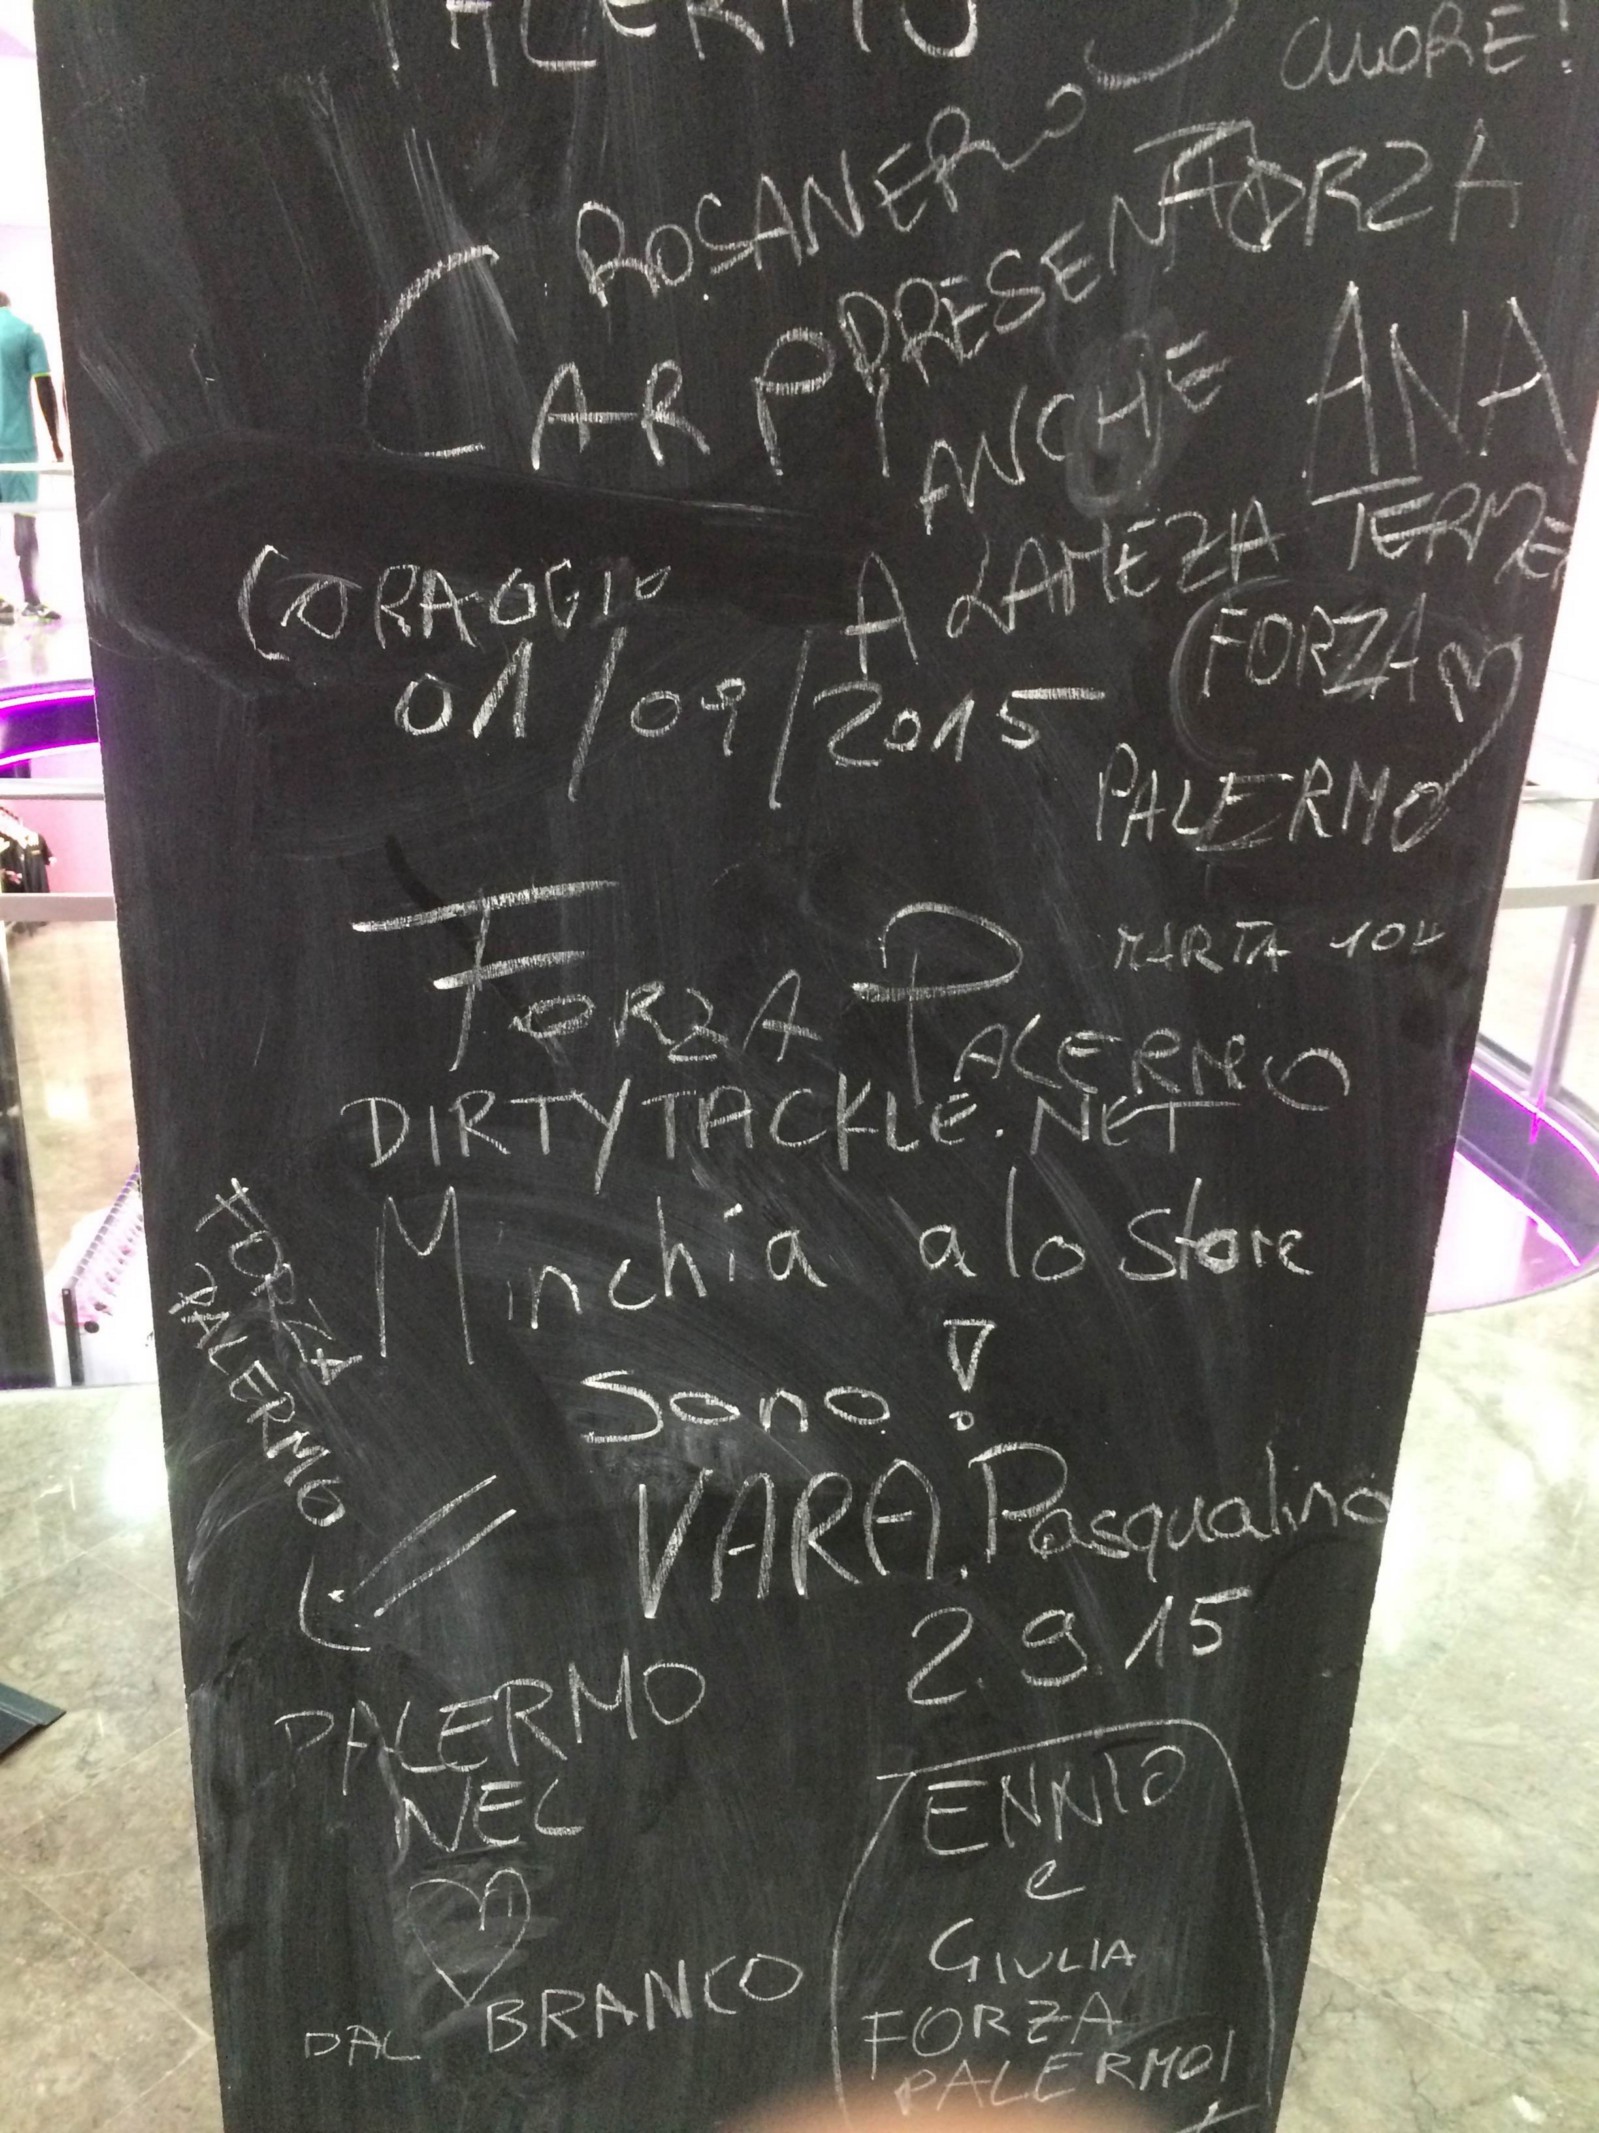 PALERMO
CUORE!
ROSANERO
FORZA
CARPPRESENTA
ANA
ANCHE
A LAMEZIA TERME
CORAGGIO
01/09/2015
FORZA
PALERMO
MARTA
FORZA PALERMO
DIRTYTACKLE.NET
Minchia a lo store
sono!
FORZA
PALERMO
VARA Pasqualino
2.9.15
PALERMO
NEL
DAL BRANCO
ENNIO
e
GIULIA
FORZA
PALERMO!